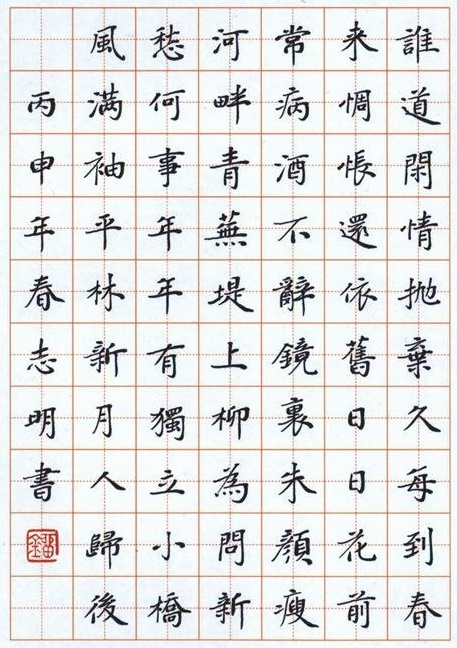 誰道閑情抛棄久每到春
来惆悵還依舊日日花前
常病酒不辭鏡裏朱顔瘦
河畔青蕪堤上柳為問新
愁何事年年有獨立小橋
風滿袖平林新月人歸後
丙申年春志明書